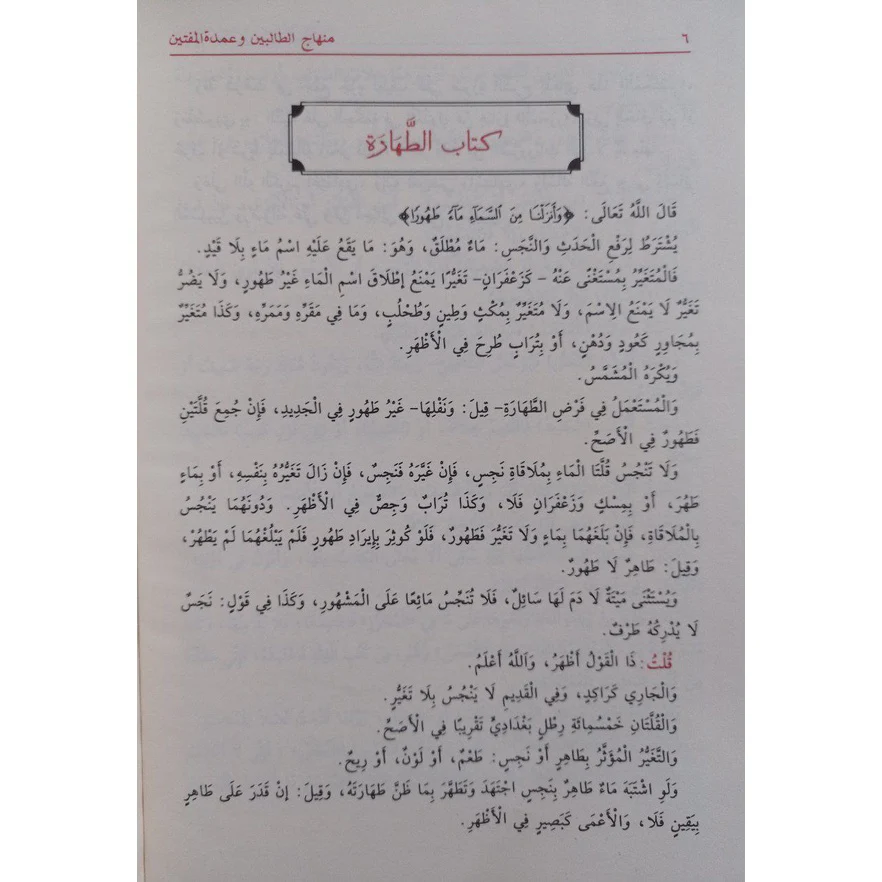 ٦ منهاج الطالبين وعمدة المفتين
كتاب الطَّهَارَة
قَالَ اللَّهُ تَعَالَى: ﴿وَأَنزَلْنَا مِنَ ٱلسَّمَآءِ مَآءً طَهُورًا﴾
يُشْتَرَطُ لِرَفْعِ الْحَدَثِ وَالنَّجَسِ: مَاءٌ مُطْلَقٌ، وَهُوَ: مَا يَقَعُ عَلَيْهِ اسْمُ مَاءٍ بِلَا قَيْدٍ.
فَالْمُتَغَيِّرُ بِمُسْتَغْنًى عَنْهُ – كَزَعْفَرَانٍ– تَغَيُّرًا يَمْنَعُ إِطْلَاقَ اسْمِ الْمَاءِ غَيْرُ طَهُورٍ، وَلَا يَضُرُّ
تَغَيُّرٌ لَا يَمْنَعُ الِاسْمَ، وَلَا مُتَغَيِّرٌ بِمُكْثٍ وَطِينٍ وَطُحْلُبٍ، وَمَا فِي مَقَرِّهِ وَمَمَرِّهِ، وَكَذَا مُتَغَيِّرٌ
بِمُجَاوِرٍ كَعُودٍ وَدُهْنٍ، أَوْ بِتُرَابٍ طُرِحَ فِي الْأَظْهَرِ.
وَيُكْرَهُ الْمُشَمَّسُ.
وَالْمُسْتَعْمَلُ فِي فَرْضِ الطَّهَارَةِ– قِيلَ: وَنَفْلِهَا– غَيْرُ طَهُورٍ فِي الْجَدِيدِ، فَإِنْ جُمِعَ قُلَّتَيْنِ
فَطَهُورٌ فِي الْأَصَحِّ.
وَلَا تَنْجُسُ قُلَّتَا الْمَاءِ بِمُلَاقَاةِ نَجِسٍ، فَإِنْ غَيَّرَهُ فَنَجِسٌ، فَإِنْ زَالَ تَغَيُّرُهُ بِنَفْسِهِ، أَوْ بِمَاءٍ
طَهُرَ، أَوْ بِمِسْكٍ وَزَعْفَرَانٍ فَلَا، وَكَذَا تُرَابٌ وَجِصٌّ فِي الْأَظْهَرِ. وَدُونَهُمَا يَنْجُسُ
بِالْمُلَاقَاةِ، فَإِنْ بَلَغَهُمَا بِمَاءٍ وَلَا تَغَيُّرَ فَطَهُورٌ، فَلَوْ كُوثِرَ بِإِيرَادِ طَهُورٍ فَلَمْ يَبْلُغْهُمَا لَمْ يَطْهُرْ،
وَقِيلَ: طَاهِرٌ لَا طَهُورٌ.
وَيُسْتَثْنَى مَيْتَةٌ لَا دَمَ لَهَا سَائِلٌ، فَلَا تُنَجِّسُ مَائِعًا عَلَى الْمَشْهُورِ، وَكَذَا فِي قَوْلٍ: نَجَسٌ
لَا يُدْرِكُهُ طَرْفٌ.
قُلْتُ: ذَا الْقَوْلُ أَظْهَرُ، وَاَللَّهُ أَعْلَمُ.
وَالْجَارِي كَرَاكِدٍ، وَفِي الْقَدِيمِ لَا يَنْجُسُ بِلَا تَغَيُّرٍ.
وَالْقُلَّتَانِ خَمْسُمِائَةِ رِطْلٍ بَغْدَادِيٍّ تَقْرِيبًا فِي الْأَصَحِّ.
وَالتَّغَيُّرُ الْمُؤَثِّرُ بِطَاهِرٍ أَوْ نَجِسٍ: طَعْمٌ، أَوْ لَوْنٌ، أَوْ رِيحٌ.
وَلَوِ اشْتَبَهَ مَاءٌ طَاهِرٌ بِنَجِسٍ اجْتَهَدَ وَتَطَهَّرَ بِمَا ظَنَّ طَهَارَتَهُ، وَقِيلَ: إنْ قَدَرَ عَلَى طَاهِرٍ
بِيَقِينٍ فَلَا، وَالْأَعْمَى كَبَصِيرٍ فِي الْأَظْهَرِ.